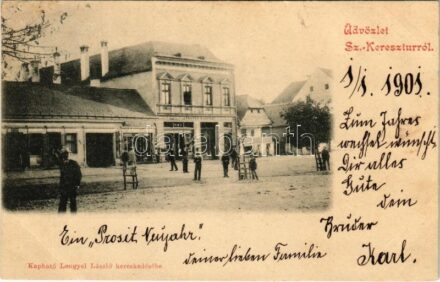 Üdvözlet
Sz.-Kereszturról.
1/1 1901.
Zum Jahres
wechsel wünscht
Dir alles
Gute
dein
Bruder
Karl.
Ein „Prosit Neujahr“
deiner lieben Familie
Kapható Lengyel László kereskedésébe.
darabanth